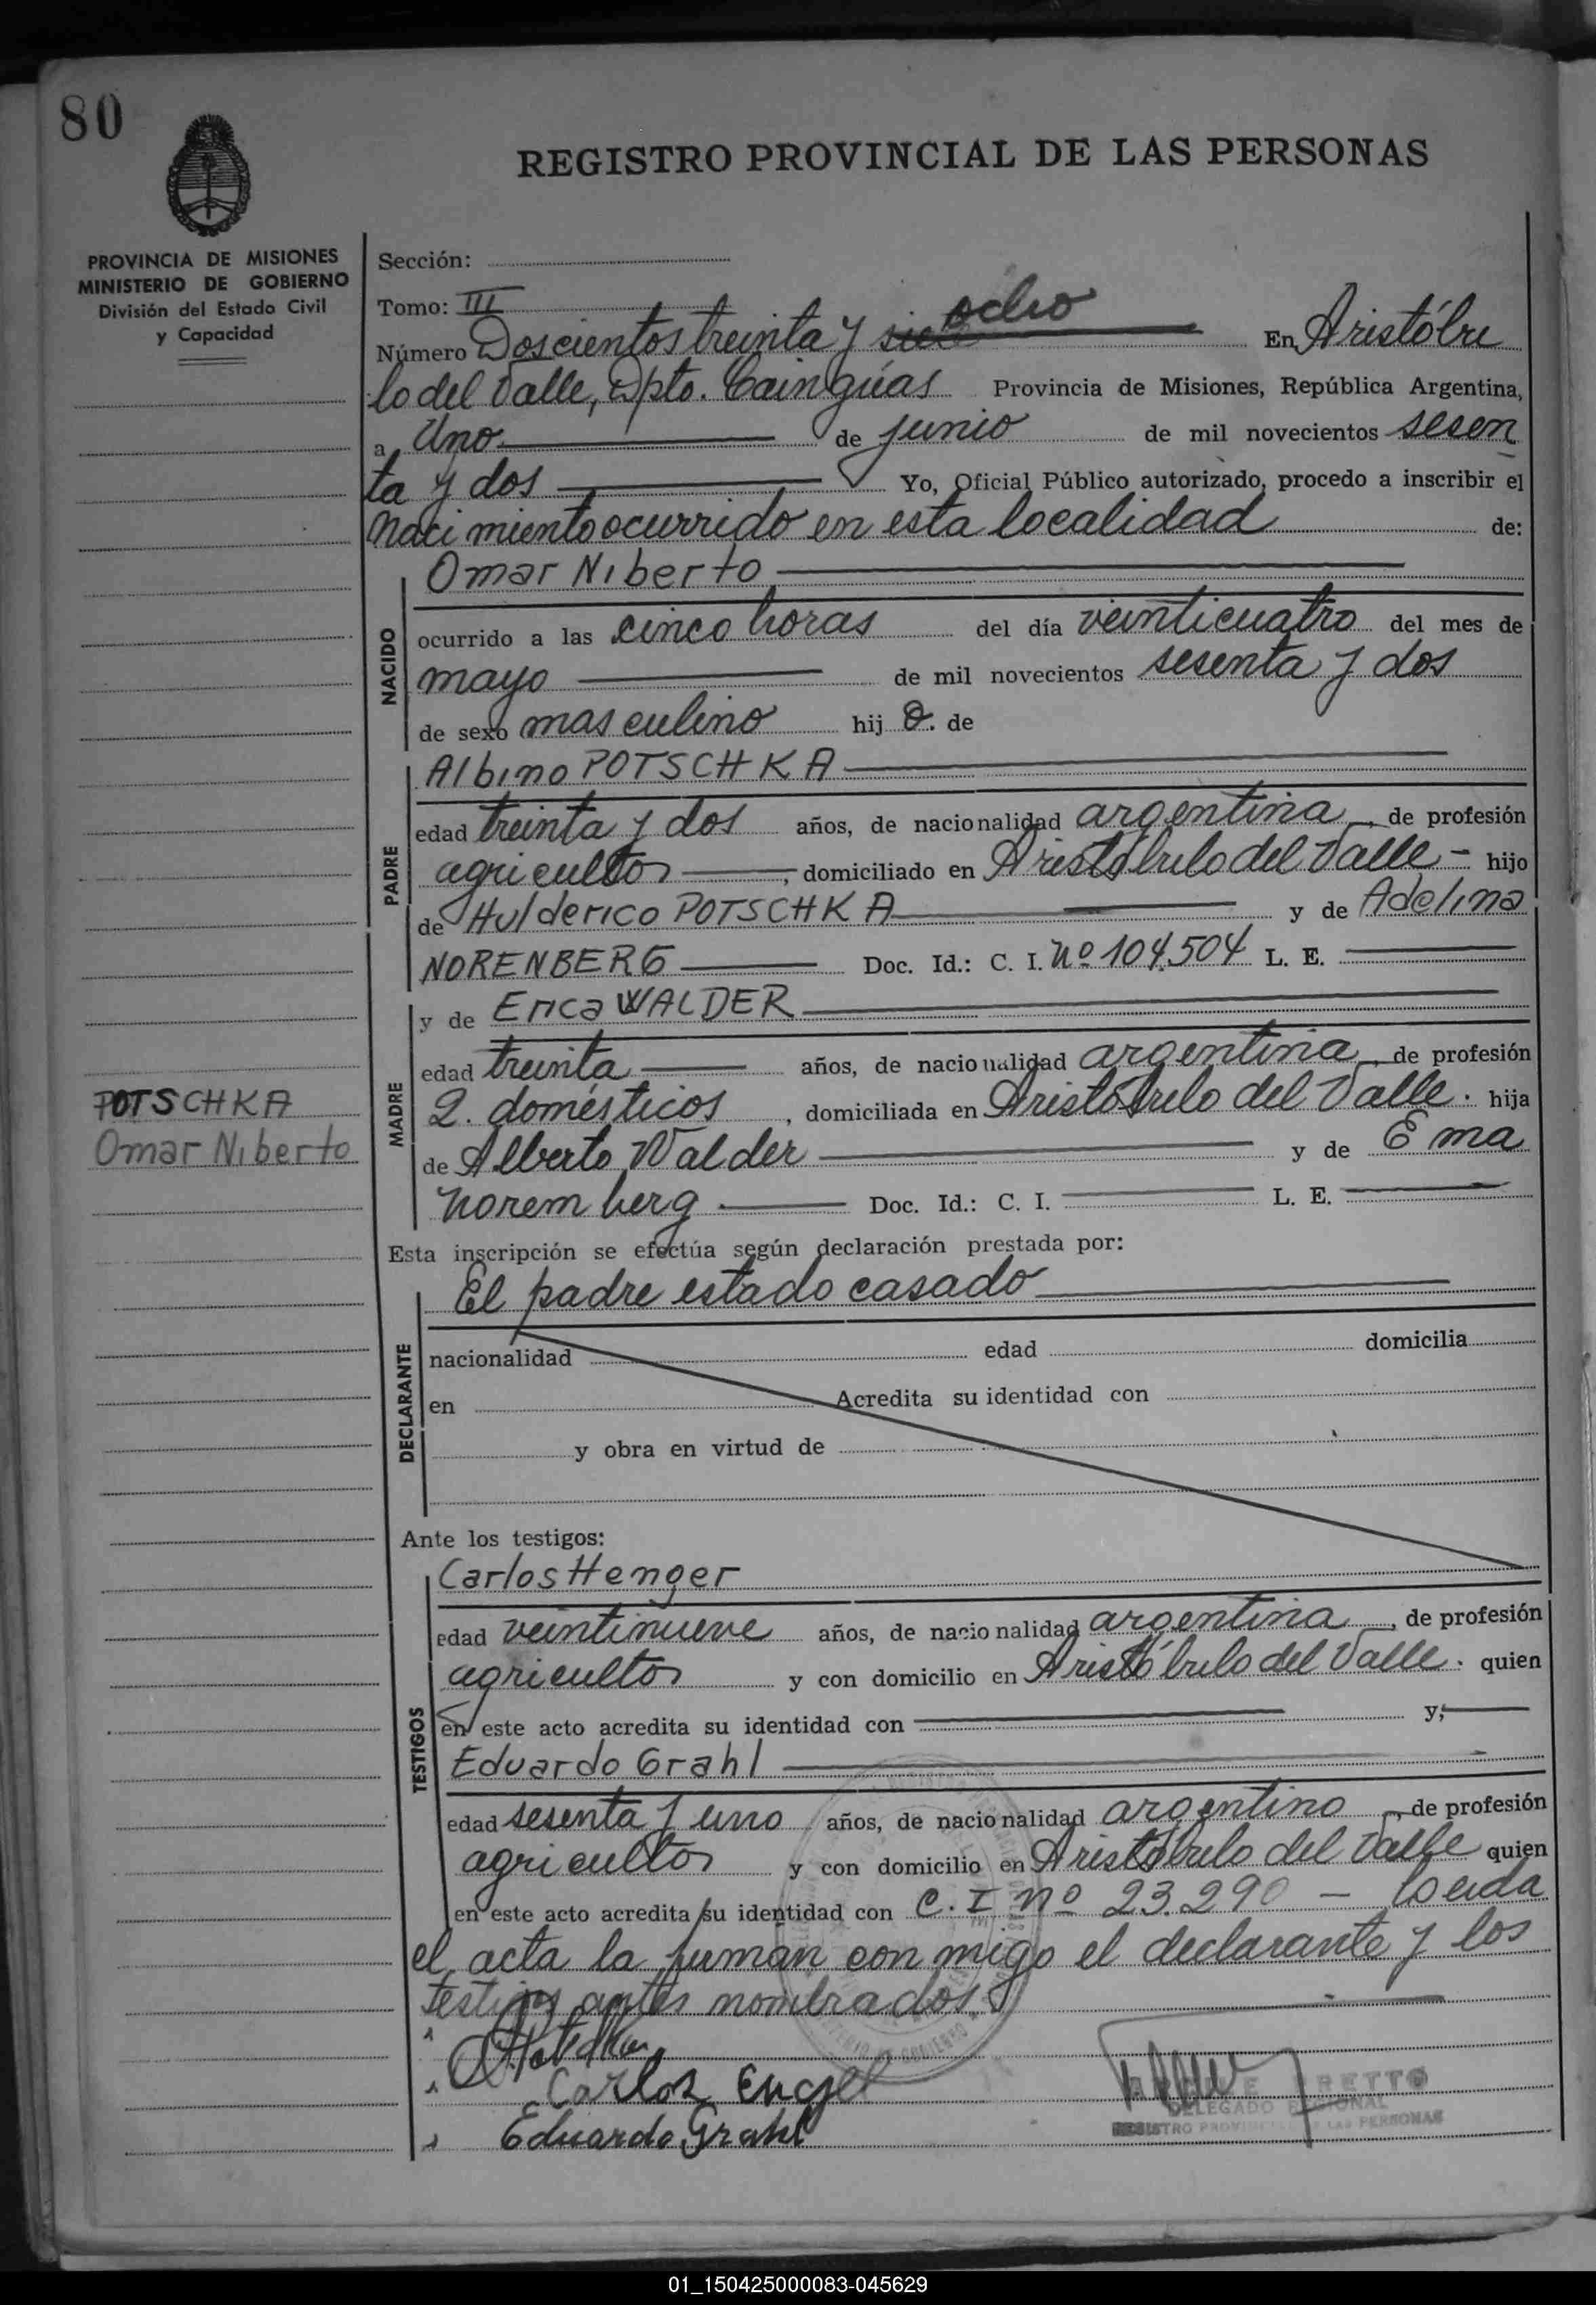 80
REGISTRO PROVINCIAL DE LAS PERSONAS
PROVINCIA DE MISIONES
MINISTERIO DE GOBIERNO
División del Estado Civil
y Capacidad
Sección:
Tomo: III
ocho
Número Doscientos treinta y siete En Aristóbu
lo del Valle, Dpto. Cainguas Provincia de Misiones, República Argentina,
a Uno de junio de mil novecientos sesen
ta y dos Yo, Oficial Público autorizado, procedo a inscribir el
Nacimiento ocurrido en esta localidad de:
Omar Niberto
NACIDO
ocurrido a las cinco horas del día veinticuatro del mes de
mayo de mil novecientos sesenta y dos
de sexo masculino hij o. de
Albino POTSCHKA
PADRE
edad treinta y dos años, de nacionalidad argentina, de profesión
agricultor, domiciliado en Aristóbulo del Valle - hijo
de Hulderico POTSCHKA y de Adelina
NORENBERG Doc. Id.: C. I. Nº 104.504 L. E.
y de Erica WALDER
MADRE
edad treinta años, de nacionalidad argentina, de profesión
Q. domésticos, domiciliada en Aristóbulo del Valle. hija
de Alberto Walder y de Ema
Noremberg Doc. Id.: C. I. L. E.
POTSCHKA
Omar Niberto
Esta inscripción se efectúa según declaración prestada por:
El padre estado casado
DECLARANTE
nacionalidad edad domicilia
en Acredita su identidad con
y obra en virtud de
Ante los testigos:
Carlos Henger
TESTIGOS
edad veintinueve años, de nacionalidad argentina, de profesión
agricultor y con domicilio en Aristóbulo del Valle. quien
en este acto acredita su identidad con y;
Eduardo Grahl
edad sesenta y uno años, de nacionalidad argentino, de profesión
agricultor y con domicilio en Aristóbulo del Valle quien
en este acto acredita su identidad con C. I Nº 23.290 - Leida
el acta la firman con migo el declarante y los
testigos antes nombrados.
Carlos Engel
Eduardo Grahl
DELEGADO REGIONAL
REGISTRO PROVINCIAL DE LAS PERSONAS
01_150425000083-045629